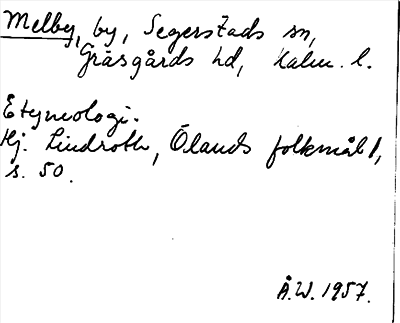 Melby, by, Segerstads sn,
Gräsgårds hd, Kalm. l.
Etymologi.
Hj. Lindroth, Ölands folkmål 1,
s. 50.
Å.W. 1957.